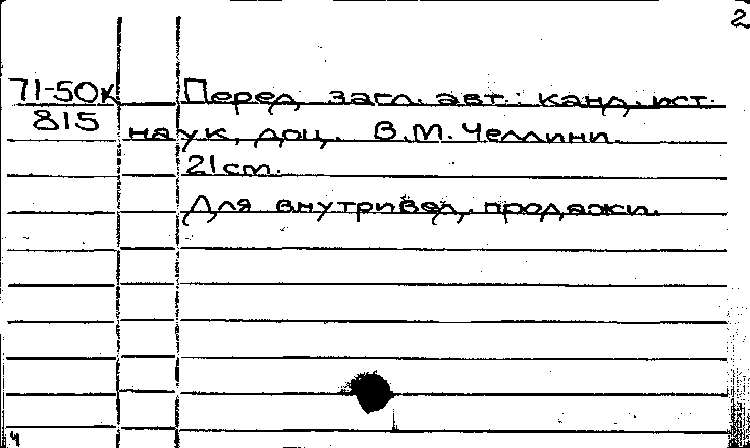 2
71-50к Перед загл. авт.: канд. ист.
815 наук, доц. В.М. Челлини.
21 cm.
Для внутривед. продажи.
ч